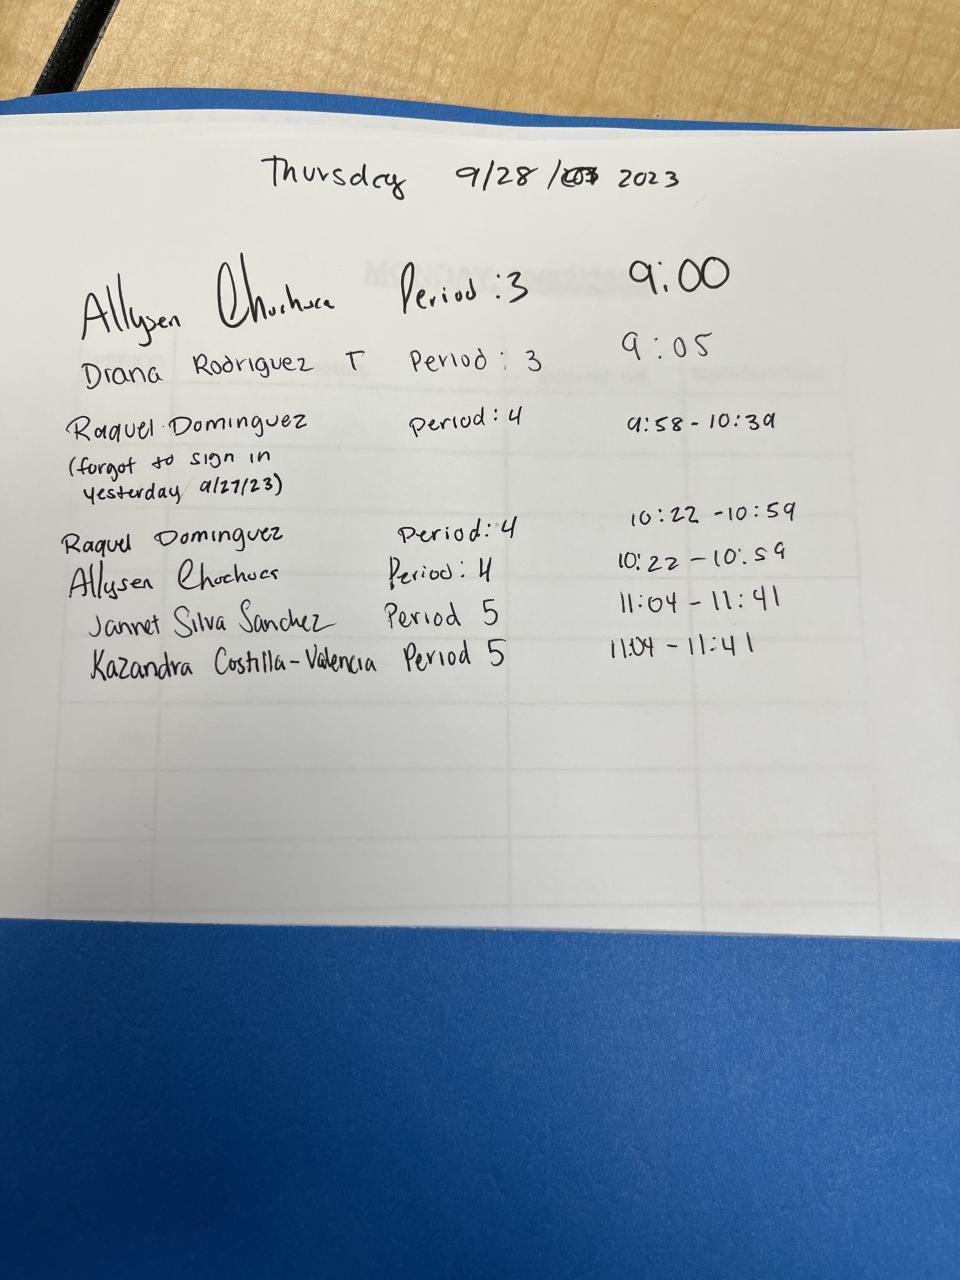 Thursday 9/28/ 2023
Allysen Chochoca Period:3 9:00
Diana Rodriguez T Period: 3 9:05
Raquel Dominguez Period:4 9:58-10:39
(forgot to sign in
yesterday 9/27/23)
Raquel Dominguez Period:4 10:22-10:59
Allysen Chochoca Period:4 10:22-10:59
Jannet Silva Sanchez Period 5 11:04-11:41
Kazandra Costilla-Valencia Period 5 11:04-11:41